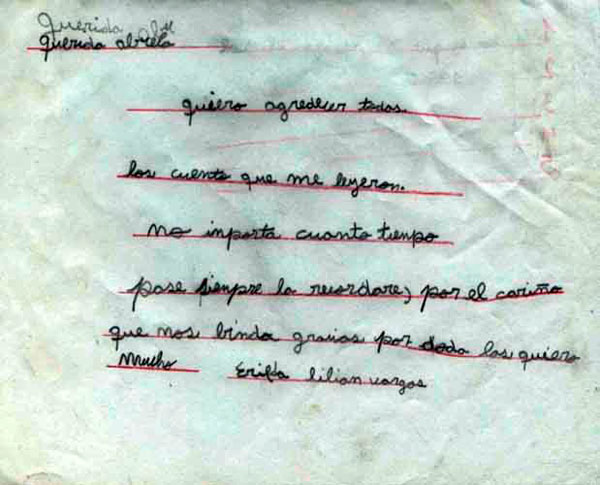 Querida
querida abuela
quiero agredecer todos.
los cuento que me leyeron.
no inporta cuanto tienpo
pase sienpre la recordare, por el cariño
que nos binda gracias por doda los quiero
Mucho Erilda lilian vargas